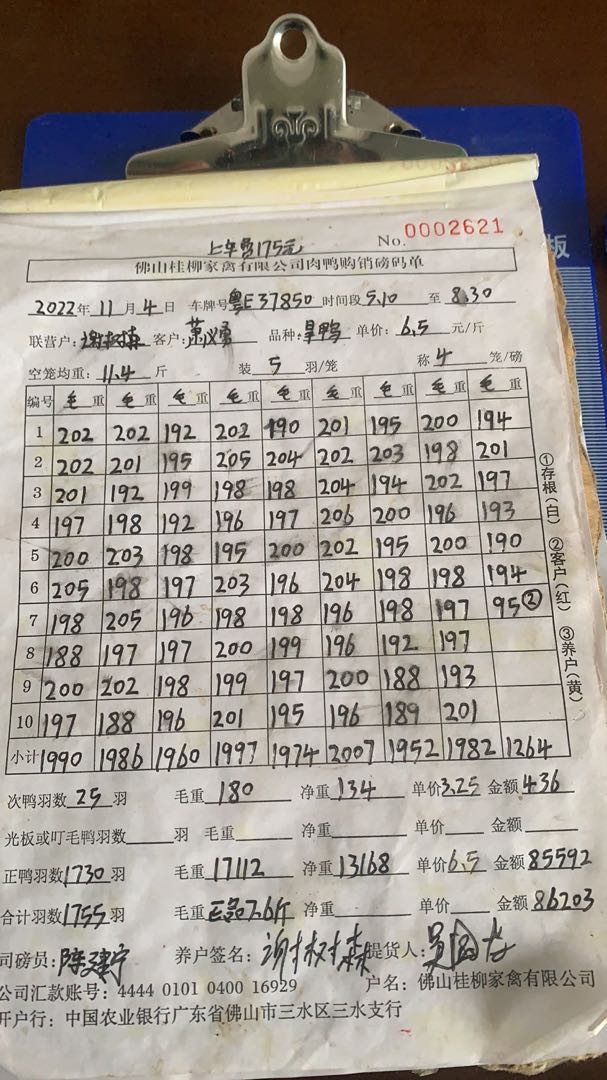 No. 0002621
上车费175元
佛山桂柳家禽有限公司肉鸭购销磅码单
2022年 11月 4日 车牌号粤E37850 时间段5.10 至 8.30
联营户: 谢树森 客户: 萧义勇 品种: 旱鸭 单价: 6.5 元/斤
空笼均重: 11.4 斤 装 5 羽/笼 称 4 笼/磅
编号 毛重 毛重 毛重 毛重 毛重 毛重 毛重 毛重 毛重
1 202 202 192 202 190 201 195 200 194
2 202 201 195 205 204 202 203 198 201
3 201 192 199 198 198 204 194 202 197
4 197 198 192 196 197 206 200 196 193
5 200 203 198 195 200 202 195 200 190
6 205 198 197 203 196 204 198 198 194
7 198 205 196 198 198 196 198 197 95②
8 188 197 197 200 199 196 192 197
9 200 202 198 199 197 200 188 193
10 197 188 196 201 195 196 189 201
小计 1990 1986 1960 1997 1974 2007 1952 1982 1264
①存根(白) ②客户(红) ③养户(黄)
次鸭羽数 25 羽 毛重 180 净重 134 单价3.25 金额436
光板或叮毛鸭羽数 羽 毛重 净重 单价 金额
正鸭羽数1730羽 毛重17112 净重13168 单价6.5 金额85592
合计羽数1755羽 毛重 7.6斤 净重 单价 金额86203
司磅员: 陈建宁 养户签名: 谢树森 提货人:
公司汇款账号: 4444 0101 0400 16929 户名: 佛山桂柳家禽有限公司
开户行: 中国农业银行广东省佛山市三水区三水支行
板